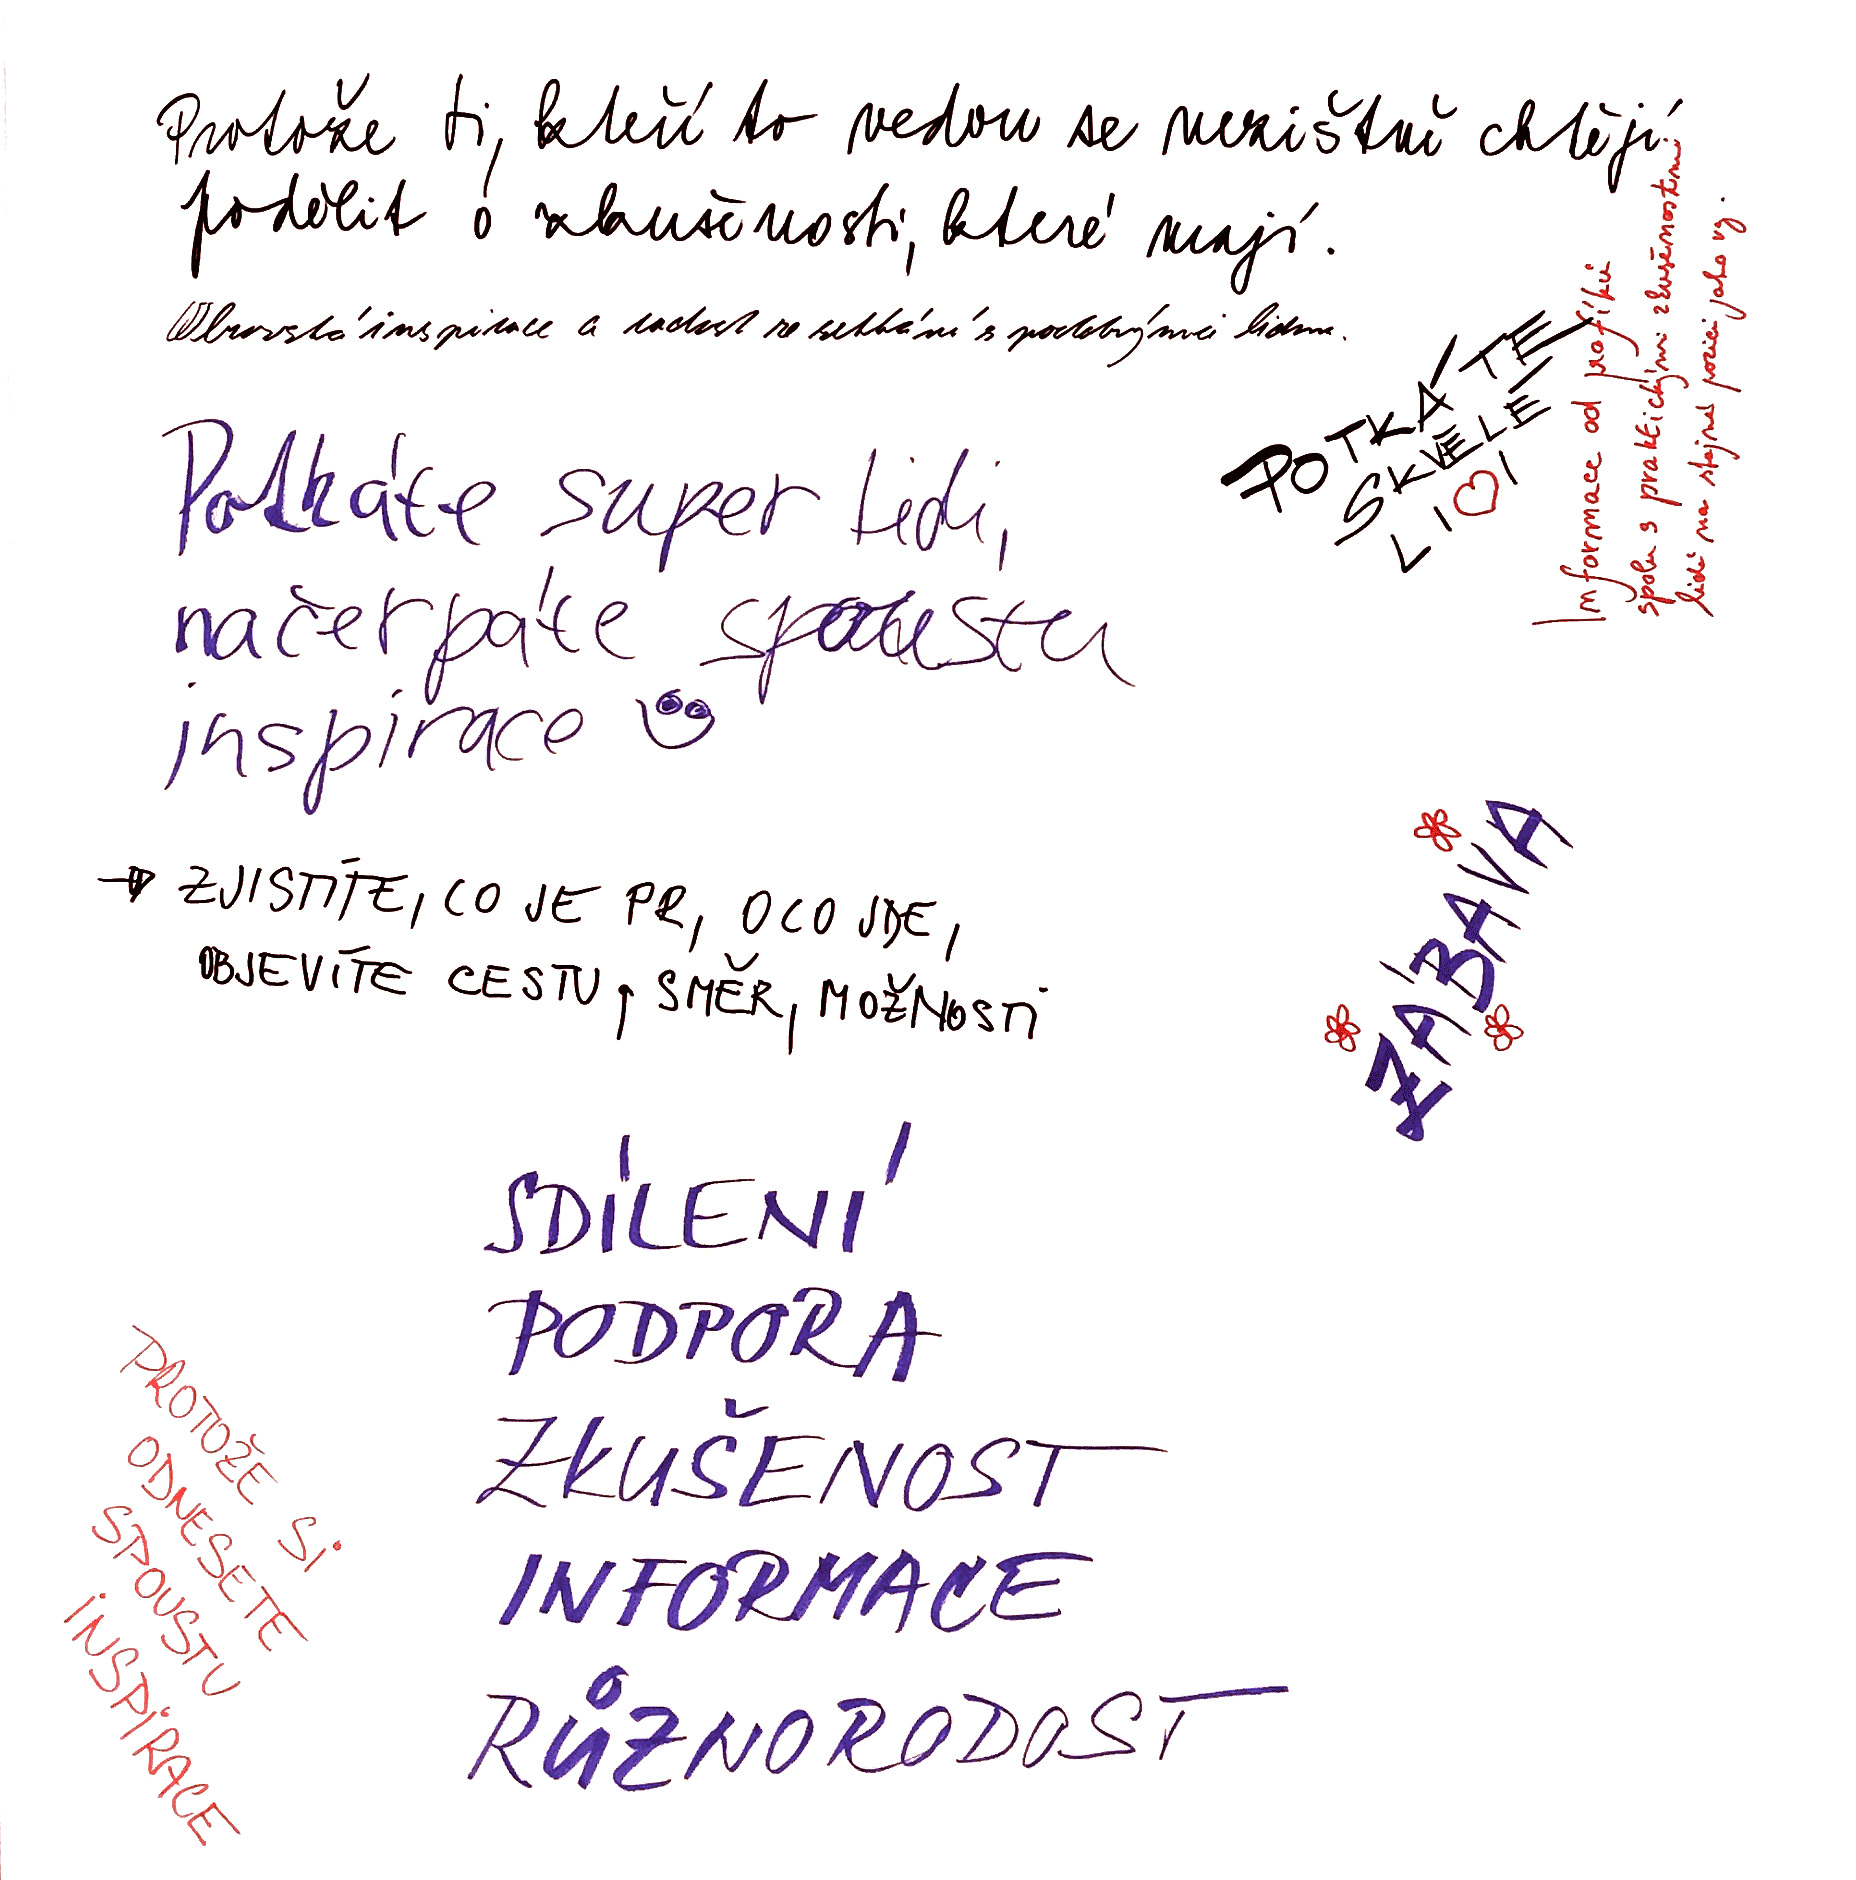 Protože ti, kteří to vedou se nezištně chtějí
podělit o zkušenosti, které mají.
Obrovská inspirace a radost ze setkání s podobnými lidmi.
POTKÁTE
SKVĚLÉ
LIDI
Informace od profíků
spolu s praktickými zkušenostmi
lidí na stejné pozici jako vy.
Potkáte super lidi,
načerpáte spoustu
inspirace
→ ZJISTÍTE, CO JE PR, O CO JDE,
OBJEVÍTE CESTU, SMĚR, MOŽNOSTI
ZÁBAVA
SDÍLENÍ
PODPORA
ZKUŠENOST
INFORMACE
RŮZNORODOST
PROTOŽE SI
ODNESETE
SPOUSTU
INSPIRACE